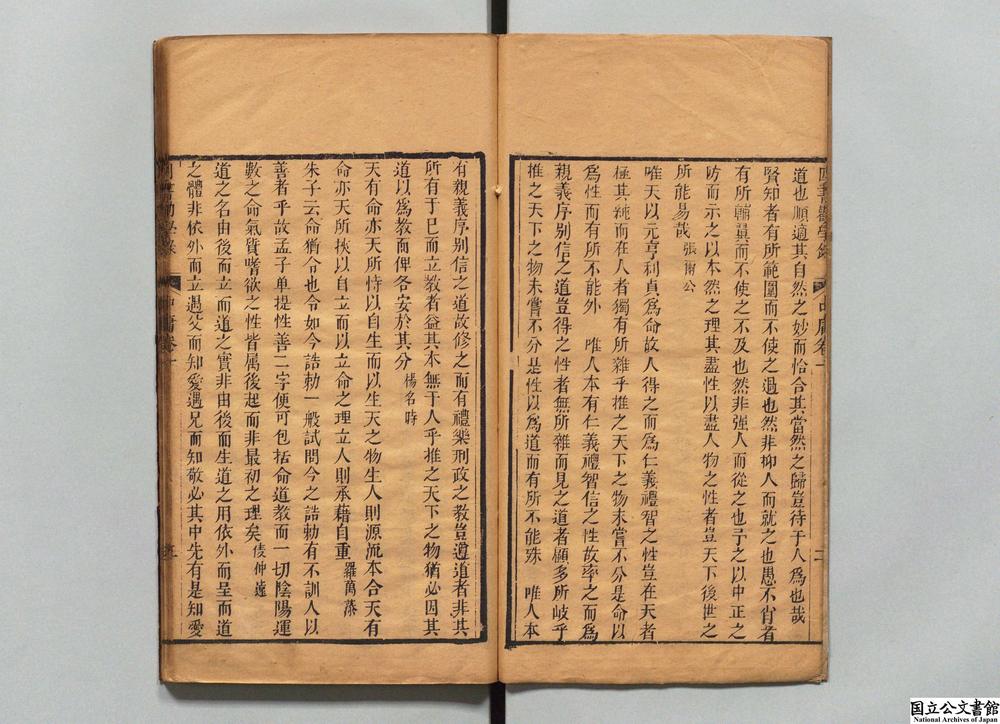 道也順適其自然之妙而恰合其當然之歸豈待于人爲也哉
賢知者有所範圍而不使之過也然非抑人而就之也愚不肖者
有所輔翼而不使之不及也然非强人而從之也予之以中正之
防而示之以本然之理其盡性以盡人物之性者豈天下後世之
所能易哉 張甫公
唯天以元亨利貞爲命故人得之而爲仁義禮智之性豈在天者
極其純而在人者獨有所雜乎推之天下之物未嘗不分是命以
爲性而有所不能外 唯人本有仁義禮智信之性故率之而爲
親義序別信之道豈得之性者無所雜而見之道者顯多所岐乎
推之天下之物未嘗不分是性以爲道而有所不能殊 唯人本
有親義序別信之道故修之而有禮樂刑政之教豈遵道者非其
所有于已而立教者益其本無于人乎推之天下之物猶必因其
道以爲教而俾各安於其分 楊名時
天有命亦天所恃以自生而以生天之物生人則源流本合天有
命亦天所挾以自立而以立命之理立人則承藉自重 羅萬藻
朱子云命猶令也令如今誥勅一般試問今之誥勅有不訓人以
善者乎故孟子单提性善二字便可包括命道教而一切陰陽運
數之命氣質嗜欲之性皆属後起而非最初之理矣
道之名由後而立而道之實非由後而生道之用依外而呈而道
之體非依外而立遇父而知愛遇兄而知敬必其中先有是知愛
中庸卷一
国立公文書館
National Archives of Japan